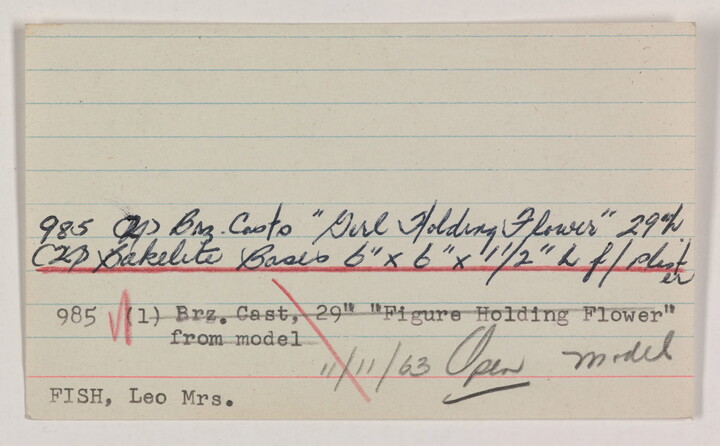 985 (2) Brz. Casts "Girl Holding Flower" 29"h
(2) Bakelite Bases 6" x 6" x 1 1/2" h f/ plast
er
985 (1) Brz. Cast, 29" "Figure Holding Flower"
from model
11/11/63 Open model
FISH, Leo Mrs.